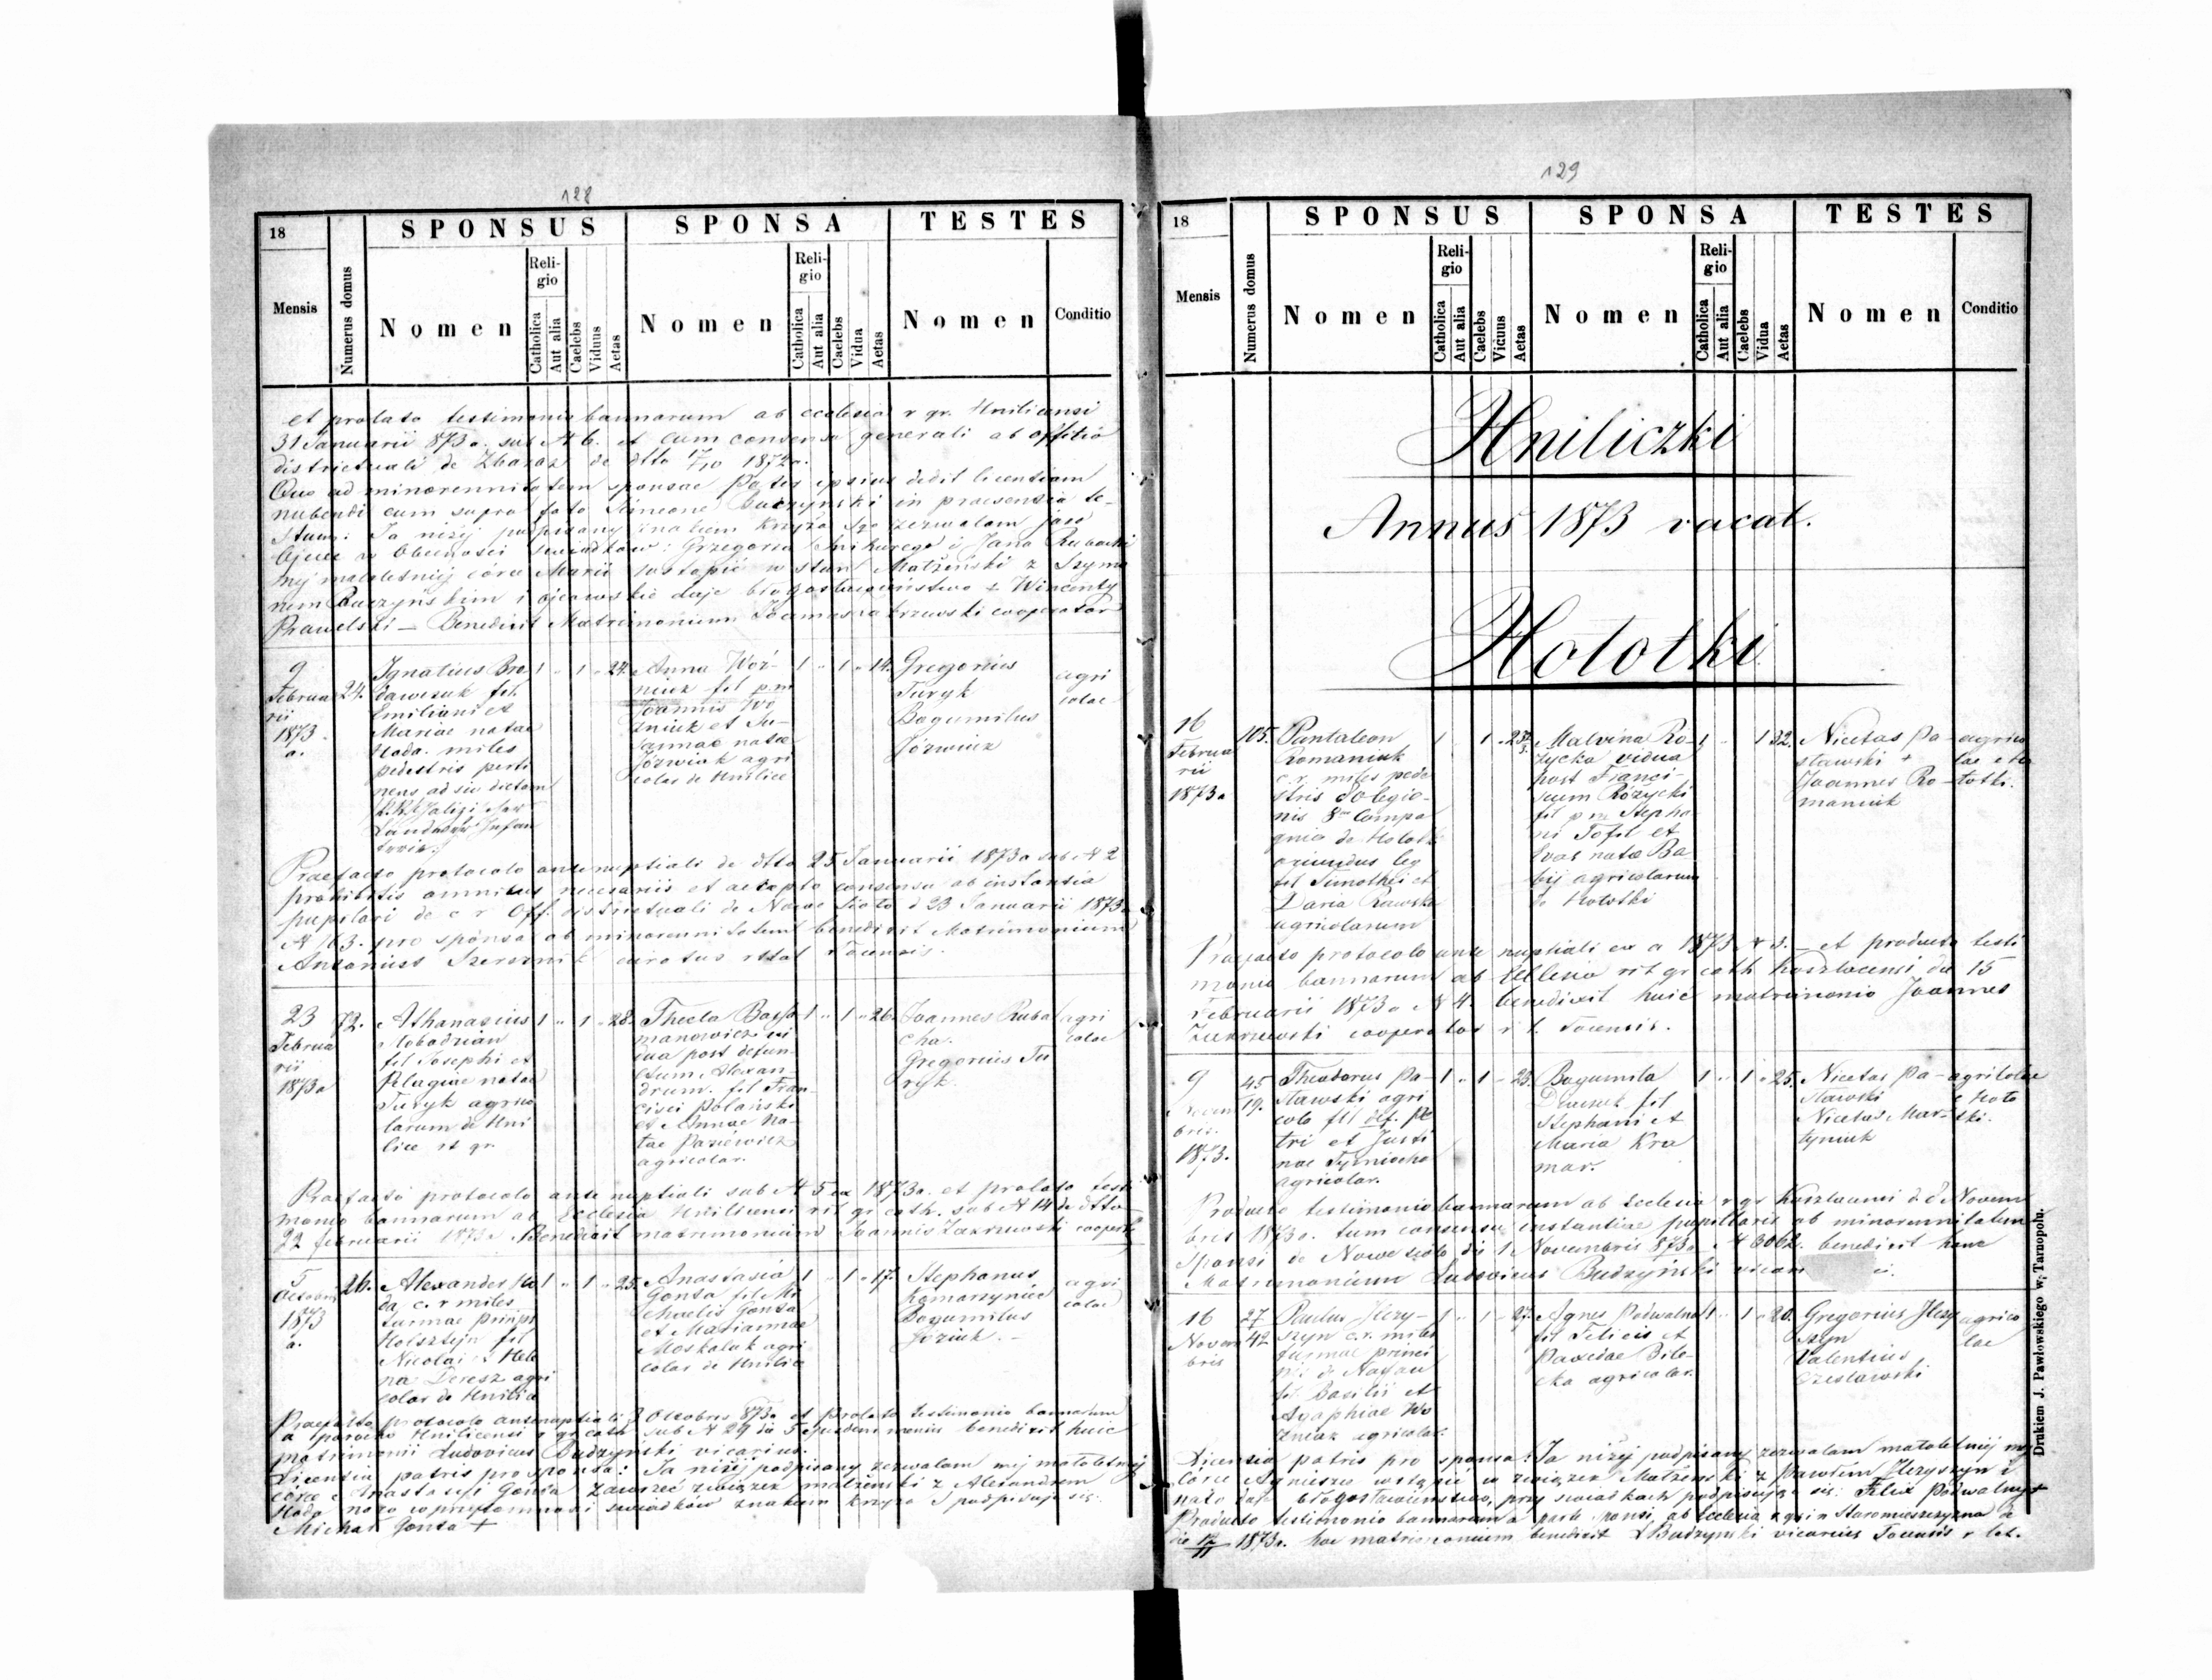 128
18
SPONSUS
SPONSA
TESTES
Mensis
Numerus domus
Nomen
Religio
Catholica
Aut alia
Caelebs
Viduus
Aetas
Nomen
Religio
Catholica
Aut alia
Caelebs
Vidua
Aetas
Nomen
Conditio
et prolato testimonio bannorum ab ecclesia r gr. Hnilicensi
31 Januarii 873 a. sub N 6. et cum consensu generali ab offitio
districtuali de Zbaraz de dtto 17/10 1872 a.
Quo ad minorennitatem sponsae Pater ipsius dedit licentiam
nubendi cum supra fato Simeone Buczynski in praesentia te-
stium: Ja niżej podpisany znakiem krzyża Ś zezwalam jako
Ojciec w obecności świadków: Grzegorza i Jana Rubachi
mej małoletniej córce Marii wstąpić w stan Małżeński z Szymo
nem Buczyńskim i ojcowskie daje błogosławieństwo + Wincenty
Prawelski — Benedixit Matrimonium Joannes Zakrzewski cooperator
9
Februa
rii
1873
a.
24.
Ignatius Bro
dawczuk fil.
Emiliani et
Mariae natae
Hoda. miles
pedestris perti
nens ad sic dictam
Landwehr Infan
terie.
1 " 1 " 24.
Anna Woź-
niuk fil p.m
Joannis Wo
zniuk et Su-
sannae natae
Józwiak agri
colar de Hnilice
1 " 1 " 14.
Gregorius
Turyk
Bogumilus
Józwiuk
agri
colae
Praefacto protocolo antenuptiali de dtto 25 Januarii 1873 a sub N 2
prohibitis omnibus necesariis et accepto consensu ab instantia
pupilari de c r Off. districtuali de Nowe Sioło d 23 Januarii 1873 a
N 163. pro sponsa ob minorennitatem benedixit Matrimonium
Antonius curatus Tocensis.
23
Februa
rii
1873 a
72.
Athanasius
Slobodzian
fil Josephi et
Pelagiae natae
Turyk agrico
larum de Hni
lice rt gr.
1 " 1 " 28.
Thecla
manowicz vi
dua post defun
ctum Alexan-
drum. fil Fran-
cisci Polański
et Annae na-
tae
agricolar.
1 " 1 " 26.
Joannes Ruba
cha.
Gregorius Tu
ryk.
agri
colae
Praefacto protocolo ante nuptiali sub N 5 ex 1873 a. et prolato testi
monio bannorum ab Ecclesia Hnilicensi rit gr cath. sub N 14 de dtto
22 februarii 1873 a Benedixit matrimonium Joannis Zakrzewski
5
Octobris
1873
a.
26.
Alexander Ho
da, c. r miles
turmae prinpi
Holsztejn fil
Nicolai & Hele
na Deresz agri
colar de Hnilice
1 " 1 " 25.
Anastasia
Gonta fil Mi
chaelis Gonta
et Mariannae
Moskaluk agri
colar de Hnilice
1 " 1 " 17.
Stephanus
Komarzyniec
Bogumilus
Joziuk. —
agri
colae
Praefacto protocolo antenuptiali 3 Octobris 873 a et prolato testimonio bannorum
a parocho Hnilicensi r gr cath sub N 29 die 5 ejusdem mensis benedixit huic
matrimonii Ludovicus Budzynski vicarius.
Licentia patris pro sponsa: Ja niżej podpisany zezwalam mej małoletniej
córce Anastasyi Gonta zawrzeć związek małżeński z Alexandrem
Hoda, na co w przytomności świadków znakiem krzyża Ś podpisuje się.
Michał Gonta +
129
18
SPONSUS
SPONSA
TESTES
Mensis
Numerus domus
Nomen
Religio
Catholica
Aut alia
Caelebs
Vicuus
Aetas
Nomen
Religio
Catholica
Aut alia
Caelebs
Vidua
Aetas
Nomen
Conditio
Hniliczki
Annus 1873 vacat.
Hołotki
16
Februa
rii
1873 a
105.
Pantaleon
Romaniuk
c. r. miles pede
stris
nis 8va Compa
gnia de Holotk
oriundus leg
fil Timothei et
Daria Rawska
agricolarum
1 1 "
Malvina Ro-
zycka vidua
post Franci-
scum Różycki
fil p m Stepha
ni Tofil et
Evae natae Ba
bij agricolarum
de Hołotki
1 " 1 32.
Nicetas Pa-
stawski +
Joannes Ro-
maniuk
agrico
lae e Ho
łotki.
Praefacto protocolo ante nuptiali ex a 1873 N 3. — et producto testi
monio bannorum ab Ecclesia rit gr cath Koszlacensi die 15
Februarii 1873 a N 4. benedixit huic matrimonio Joannes
Zakrzewski cooperator r l. Tocensis.
9
Novem
bris.
1873.
45
19.
Theodorus Pa-
stawski agri
cola fil def. Pe
tri et Justi
nae Tymiocho
agricolar.
1 " 1 " 23.
Bogumila
fil
Stephani et
Maria Kra
mar.
1 " 1 " 25.
Nicetas Pa-
stawski
Nicetas Mar-
tyniuk
agricolae
e Hoło
tki.
Producto testimonio bannorum ab Ecclesia r gr Koszlacensi d. d Novem
bris 1873 a. tum consensu instantiae pupillaris ob minorennitatem
sponsi de Nowe sioło die 1 Novembris 873 a N 3062. benedixit hanc
Matrimonium Ludovicus Budzyński vicar
16
Novem
bris
27
42
Paulus Jlczy-
szyn c. r. miles
turmae princi
pis de Nassau
fil Basilii et
Agaphiae Wo
zniak agricolar.
1 " 1 " 27.
Agnes Podwalna
fil Felicis et
Paxedae Bile-
cka agricolar.
1 " 1 " 20.
Gregorius Jlczy
szyn
Valentius
Czesławski
agrico
lae
Licencia patris pro sponsa: Ja niżej podpisany zezwalam małoletniej mej
córce Agnieszce wstąpić w związek Małżenski z Pawłem Jlczyszyn i
na to daje błogosławieństwo, przy świadkach podpisuje się: Felix Podwalny +
Producto testimonio bannorum a parte sponsi, ab Ecclesia r gr in Staromieszczyzna de
die 12/11 1873 a. hoc matrimonium benedixit L Budzynski vicarius Tocensis r lat.
Drukiem J. Pawłowskiego w Tarnopolu.